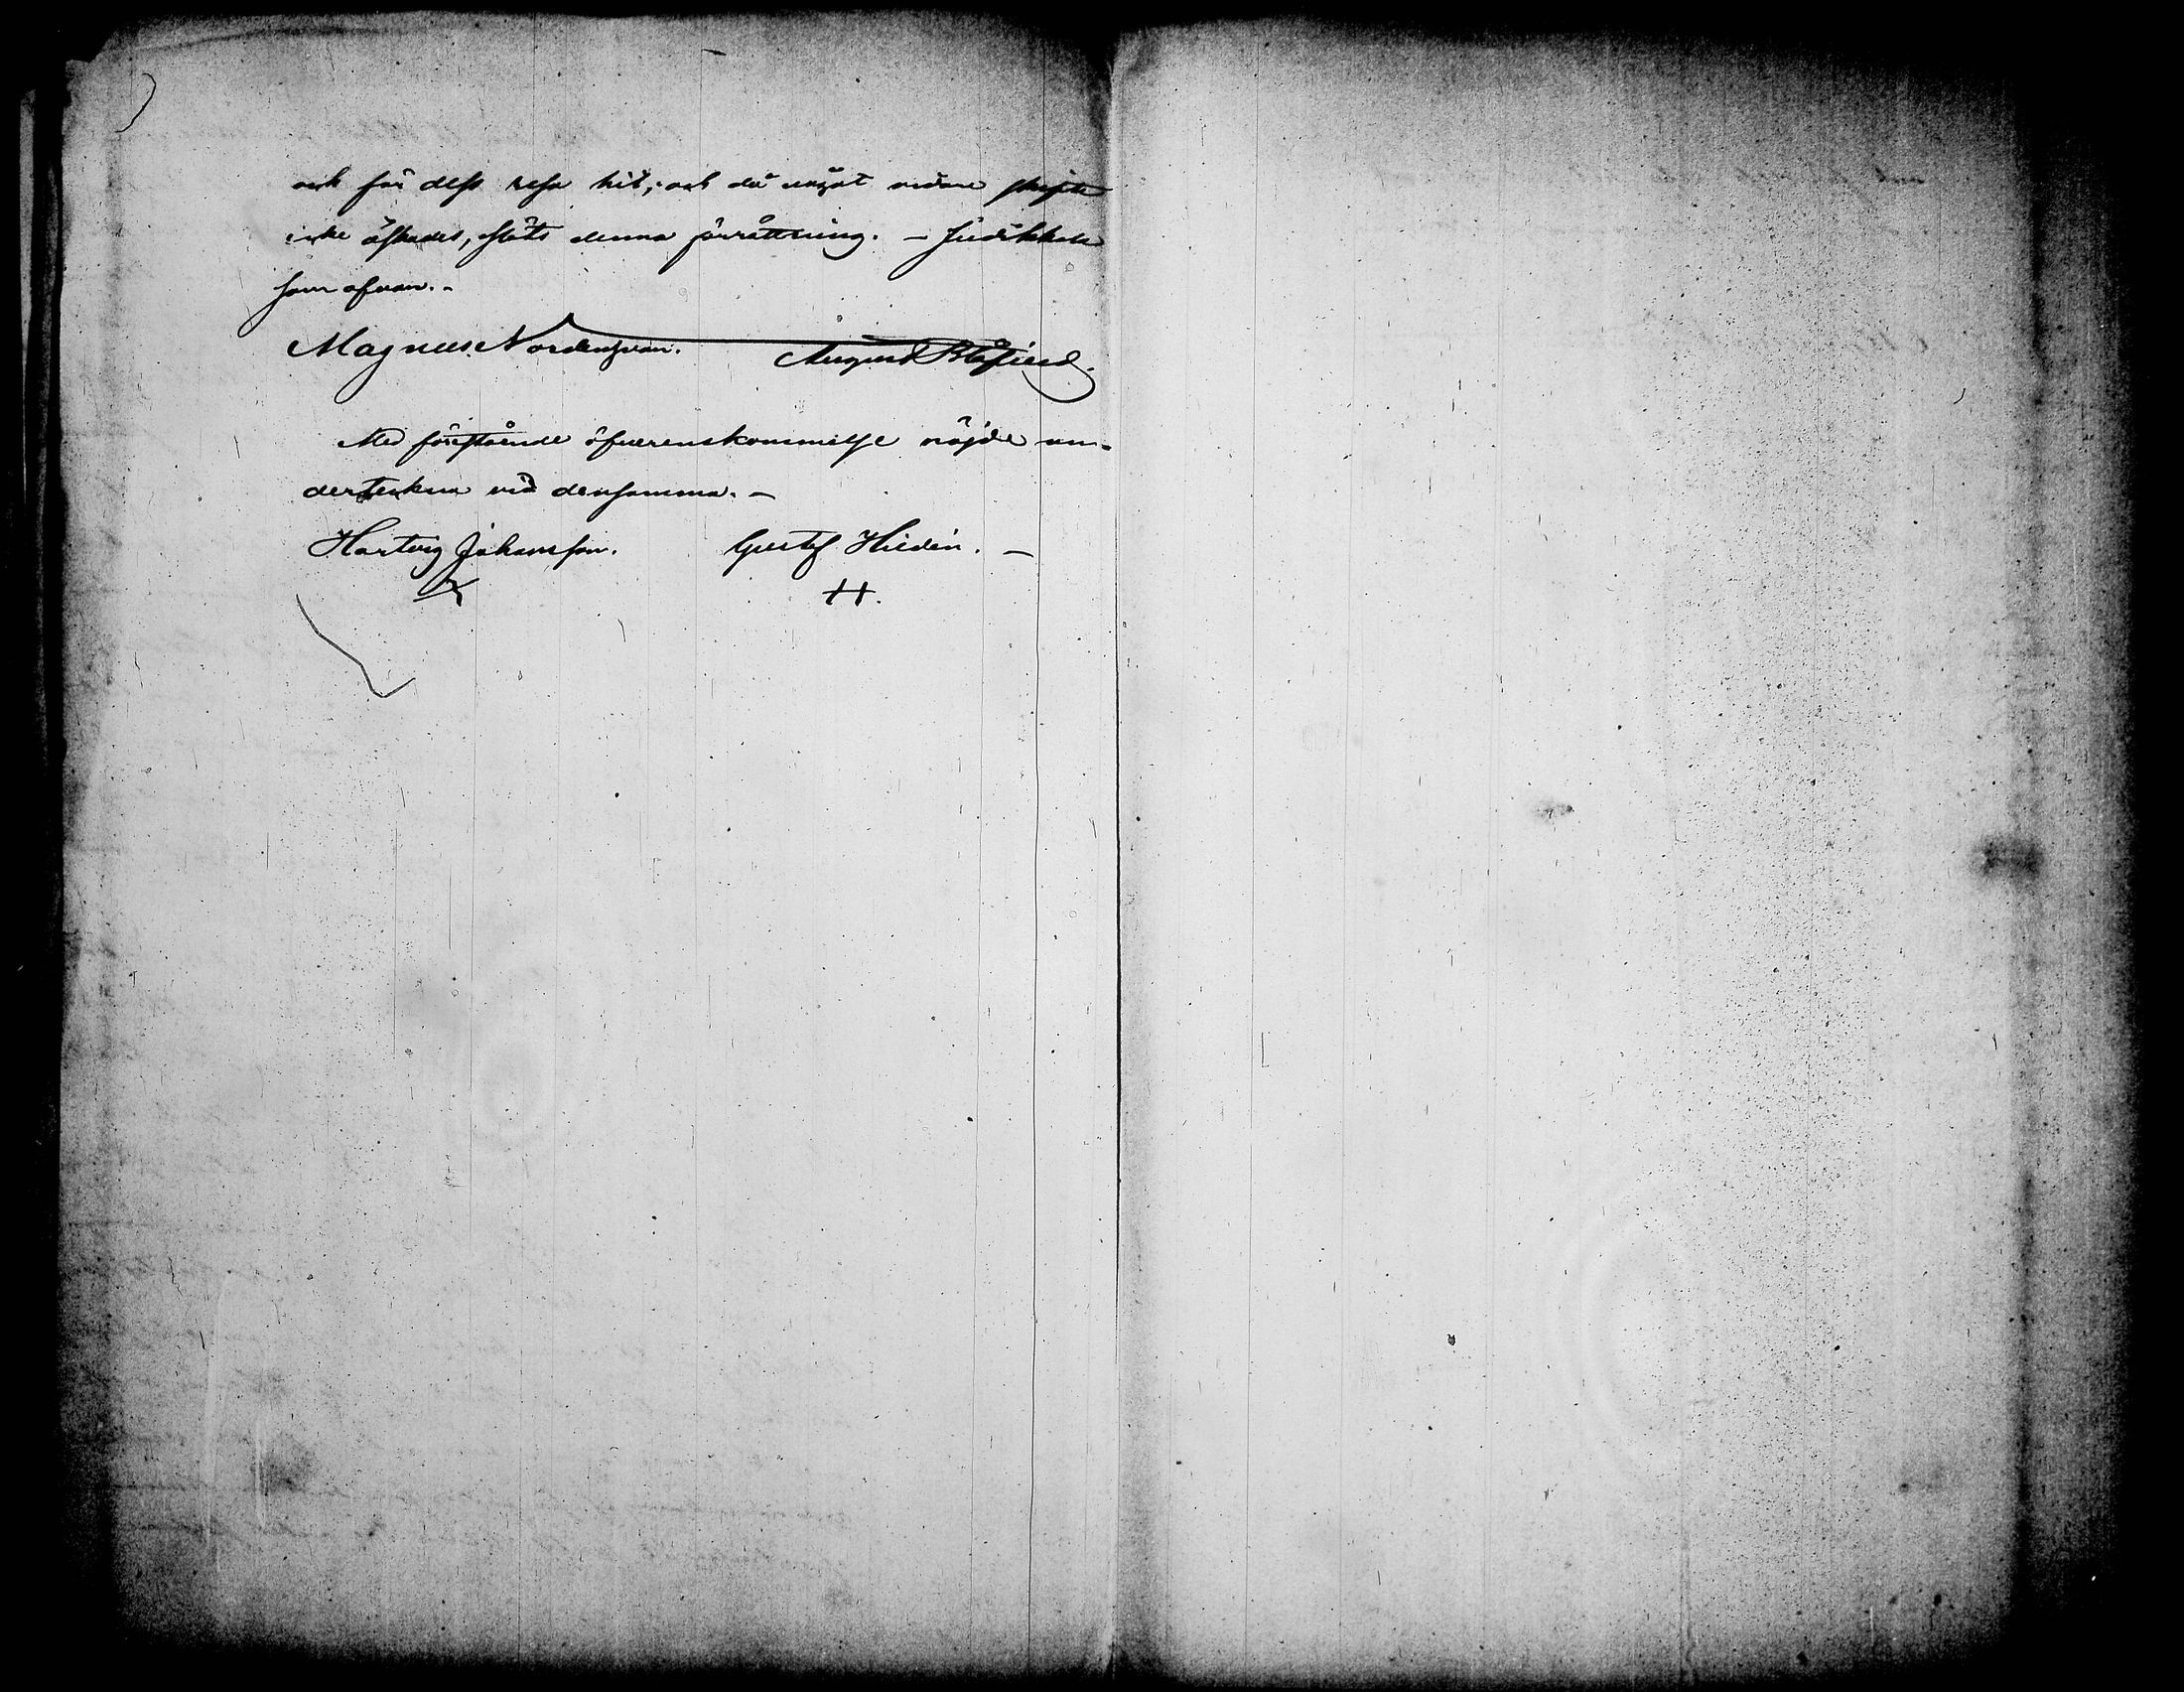 och för dess resa hit; och då något vidare skifte
icke äskades, slöts denna förrättning. –
som ofvan. –
Magnus Nordensvan. August Blåfield.
Med förestående öfverenskommelse nöjde un-
derteckna vid densamma. –
Hartvig Johansson. Gustaf Hedén. –